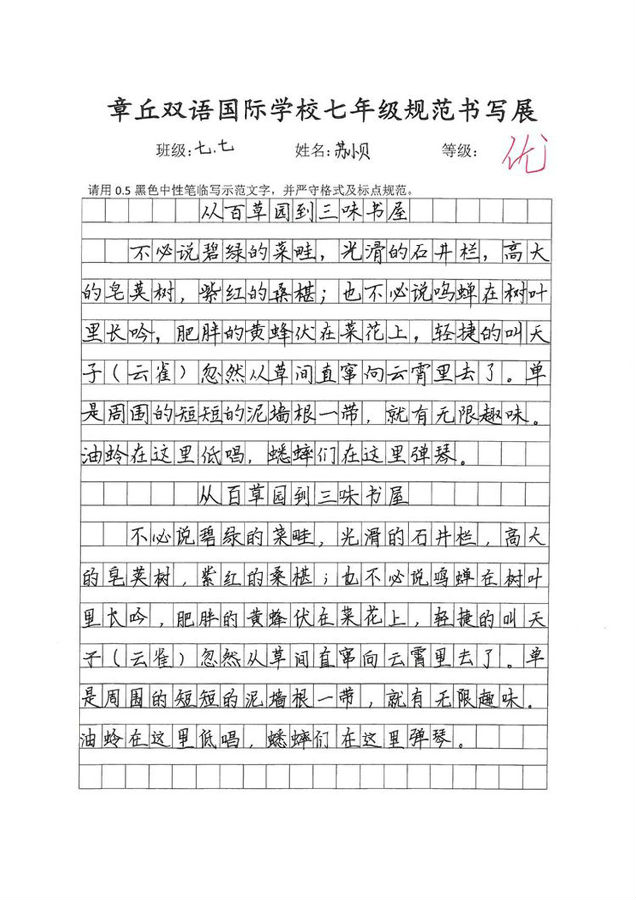 章丘双语国际学校七年级规范书写展
班级:七.七 姓名:苏小贝 等级: 优
请用 0.5 黑色中性笔临写示范文字，并严守格式及标点规范。
从百草园到三味书屋
不必说碧绿的菜畦，光滑的石井栏，高大
的皂荚树，紫红的桑椹；也不必说鸣蝉在树叶
里长吟，肥胖的黄蜂伏在菜花上，轻捷的叫天
子（云雀）忽然从草间直窜向云霄里去了。单
是周围的短短的泥墙根一带，就有无限趣味。
油蛉在这里低唱，蟋蟀们在这里弹琴。
从百草园到三味书屋
不必说碧绿的菜畦，光滑的石井栏，高大
的皂荚树，紫红的桑椹；也不必说鸣蝉在树叶
里长吟，肥胖的黄蜂伏在菜花上，轻捷的叫天
子（云雀）忽然从草间直窜向云霄里去了。单
是周围的短短的泥墙根一带，就有无限趣味。
油蛉在这里低唱，蟋蟀们在这里弹琴。